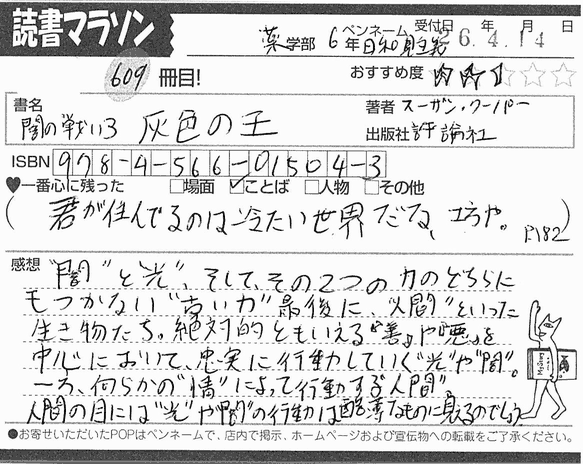 読書マラソン
受付日 年 月 日
薬学部 6年 ペンネーム 日和見主義 26.4.14
609 冊目!
おすすめ度 ★★
書名 闇の戦い3 灰色の王
著者 スーザン・クーパー
出版社 評論社
ISBN 978-4-566-01504-3
♥一番心に残った □場面 ☑ことば □人物 □その他
(君が住んでるのは冷たい世界だな、坊や。 P.182)
感想 "闇"と"光"、そして、その2つの力のどちらに
もつかない"古い力"最後に、"人間"といった
生き物たち。絶対的ともいえる"善"や"悪"を
中心において、忠実に行動していく"光"や"闇"。
一方、何らかの"情"によって行動する"人間"
人間の目には"光"や"闇"の行動は酷薄なものに見えるのでしょう
●お寄せいただいたPOPはペンネームで、店内で掲示、ホームページおよび宣伝物への転載をご了承ください。